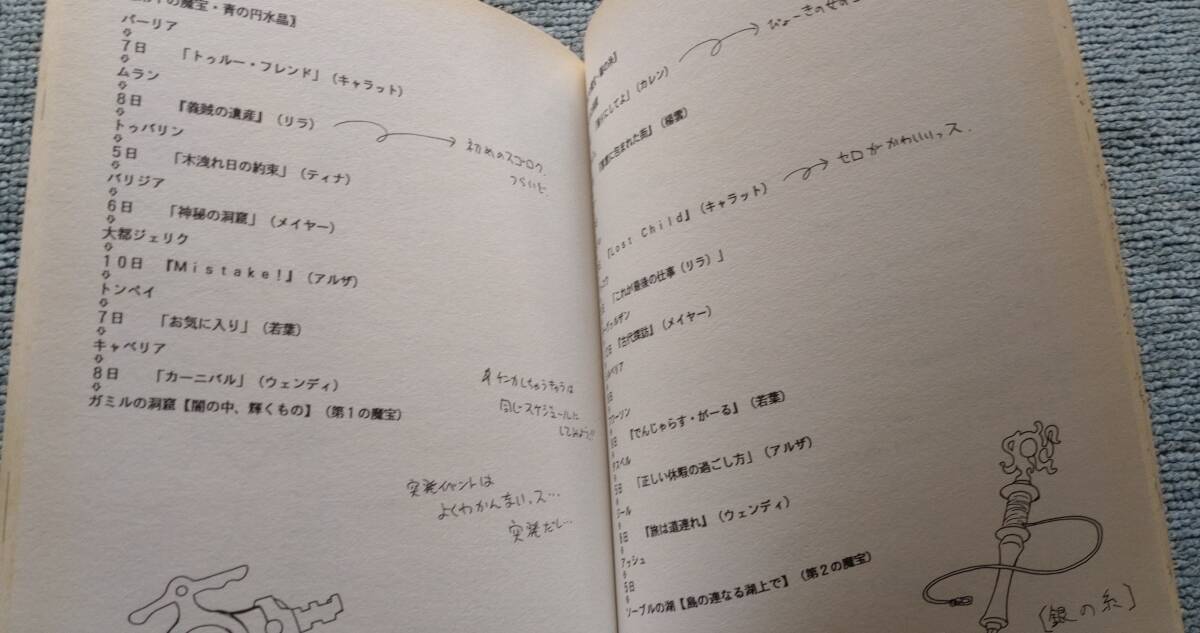 の魔宝・青の円水晶〗
パーリア
⇩
7日 「トゥルー・フレンド」(キャラット)
⇩
ムラン
⇩
8日 『義賊の遺産』(リラ)
初めのスゴーロク、
つらいと
⇩
トゥバリン
⇩
5日 「木洩れ日の約束」(ティナ)
⇩
パリジア
⇩
6日 「神秘の洞窟」(メイヤー)
⇩
大都ジェリク
⇩
10日 『Mistake!』(アルザ)
⇩
トンペイ
⇩
7日 「お気に入り」(若葉)
⇩
キャベリア
⇩
8日 「カーニバル」(ウェンディ)
⇩
ガミルの洞窟【闇の中、輝くもの】(第1の魔宝)
ケンカしちゃうきゃらは
同じスケジュールに
してみよう!!
突発イベントは
よくわかんまいっス…
突発だし…
びょーきのせの
にしてよ」(カレン)
に包まれた街』(楊雲)
『Lost Child』(キャラット)
セロがかわいいっス.
「これが最後の仕事(リラ)」
ヴァルザン
『古代探訪』(メイヤー)
ベリア
フローリン
8日 『でんじゃらす・がーる』(若葉)
タスベル
5日 「正しい休暇の過ごし方」(アルザ)
ジール
8日 『旅は道連れ』(ウェンディ)
アッシュ
5日
ソーブルの湖【島の連なる湖上で】(第2の魔宝)
[銀の糸]